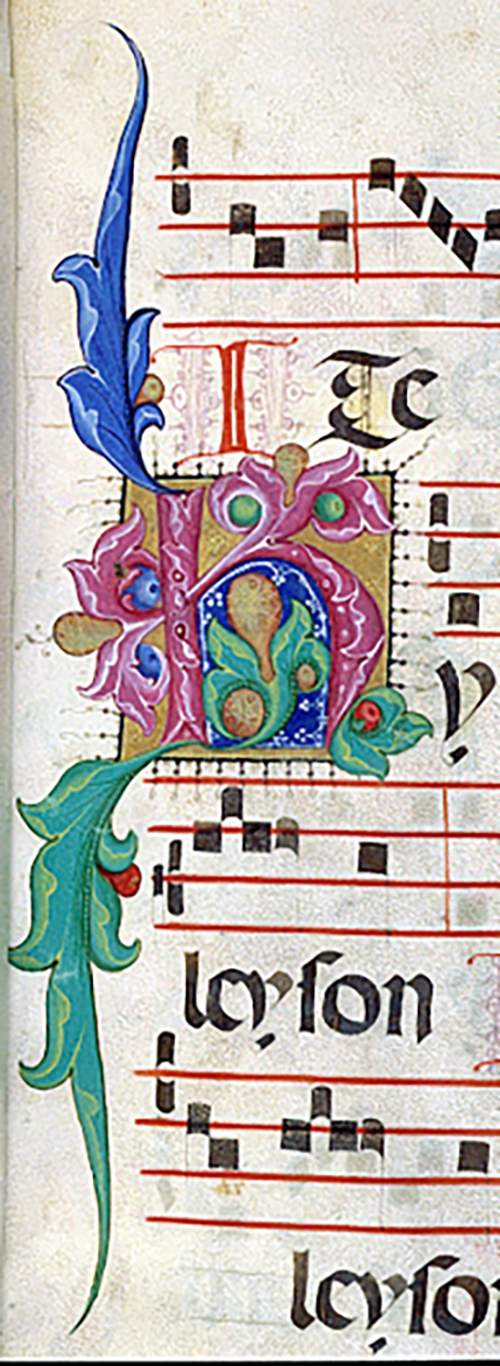 I Te
K y
leyson
leyson